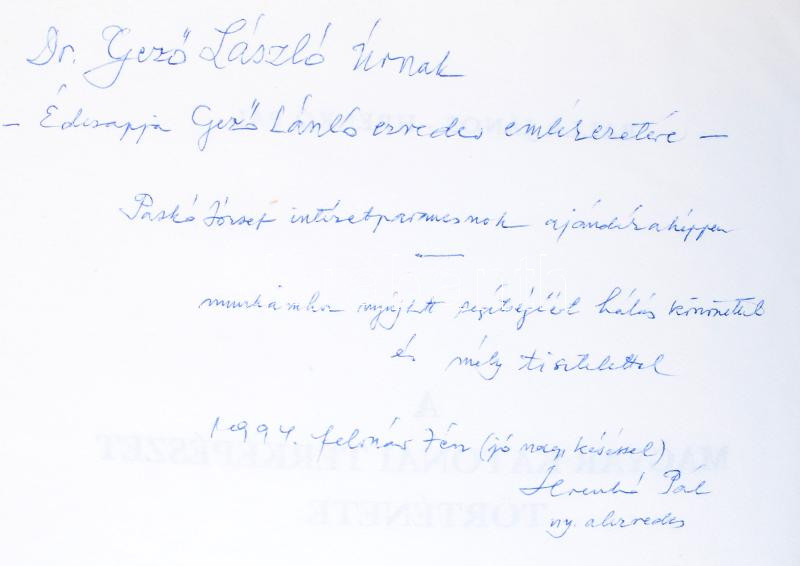 Dr. Gező László Úrnak
– Édesapja Gező László ezredes emlékezetére –
Paskó József intézetparancsnok ajándékaképpen
munkámhoz nyújtott segítségéért hálás köszönettel
és mély tisztelettel
1994. február 7én (jó nagy késéssel)
Hrenkó Pál
ny. alezredes
A
MAGYAR KATONAI TÉRKÉPÉSZET
TÖRTÉNETE